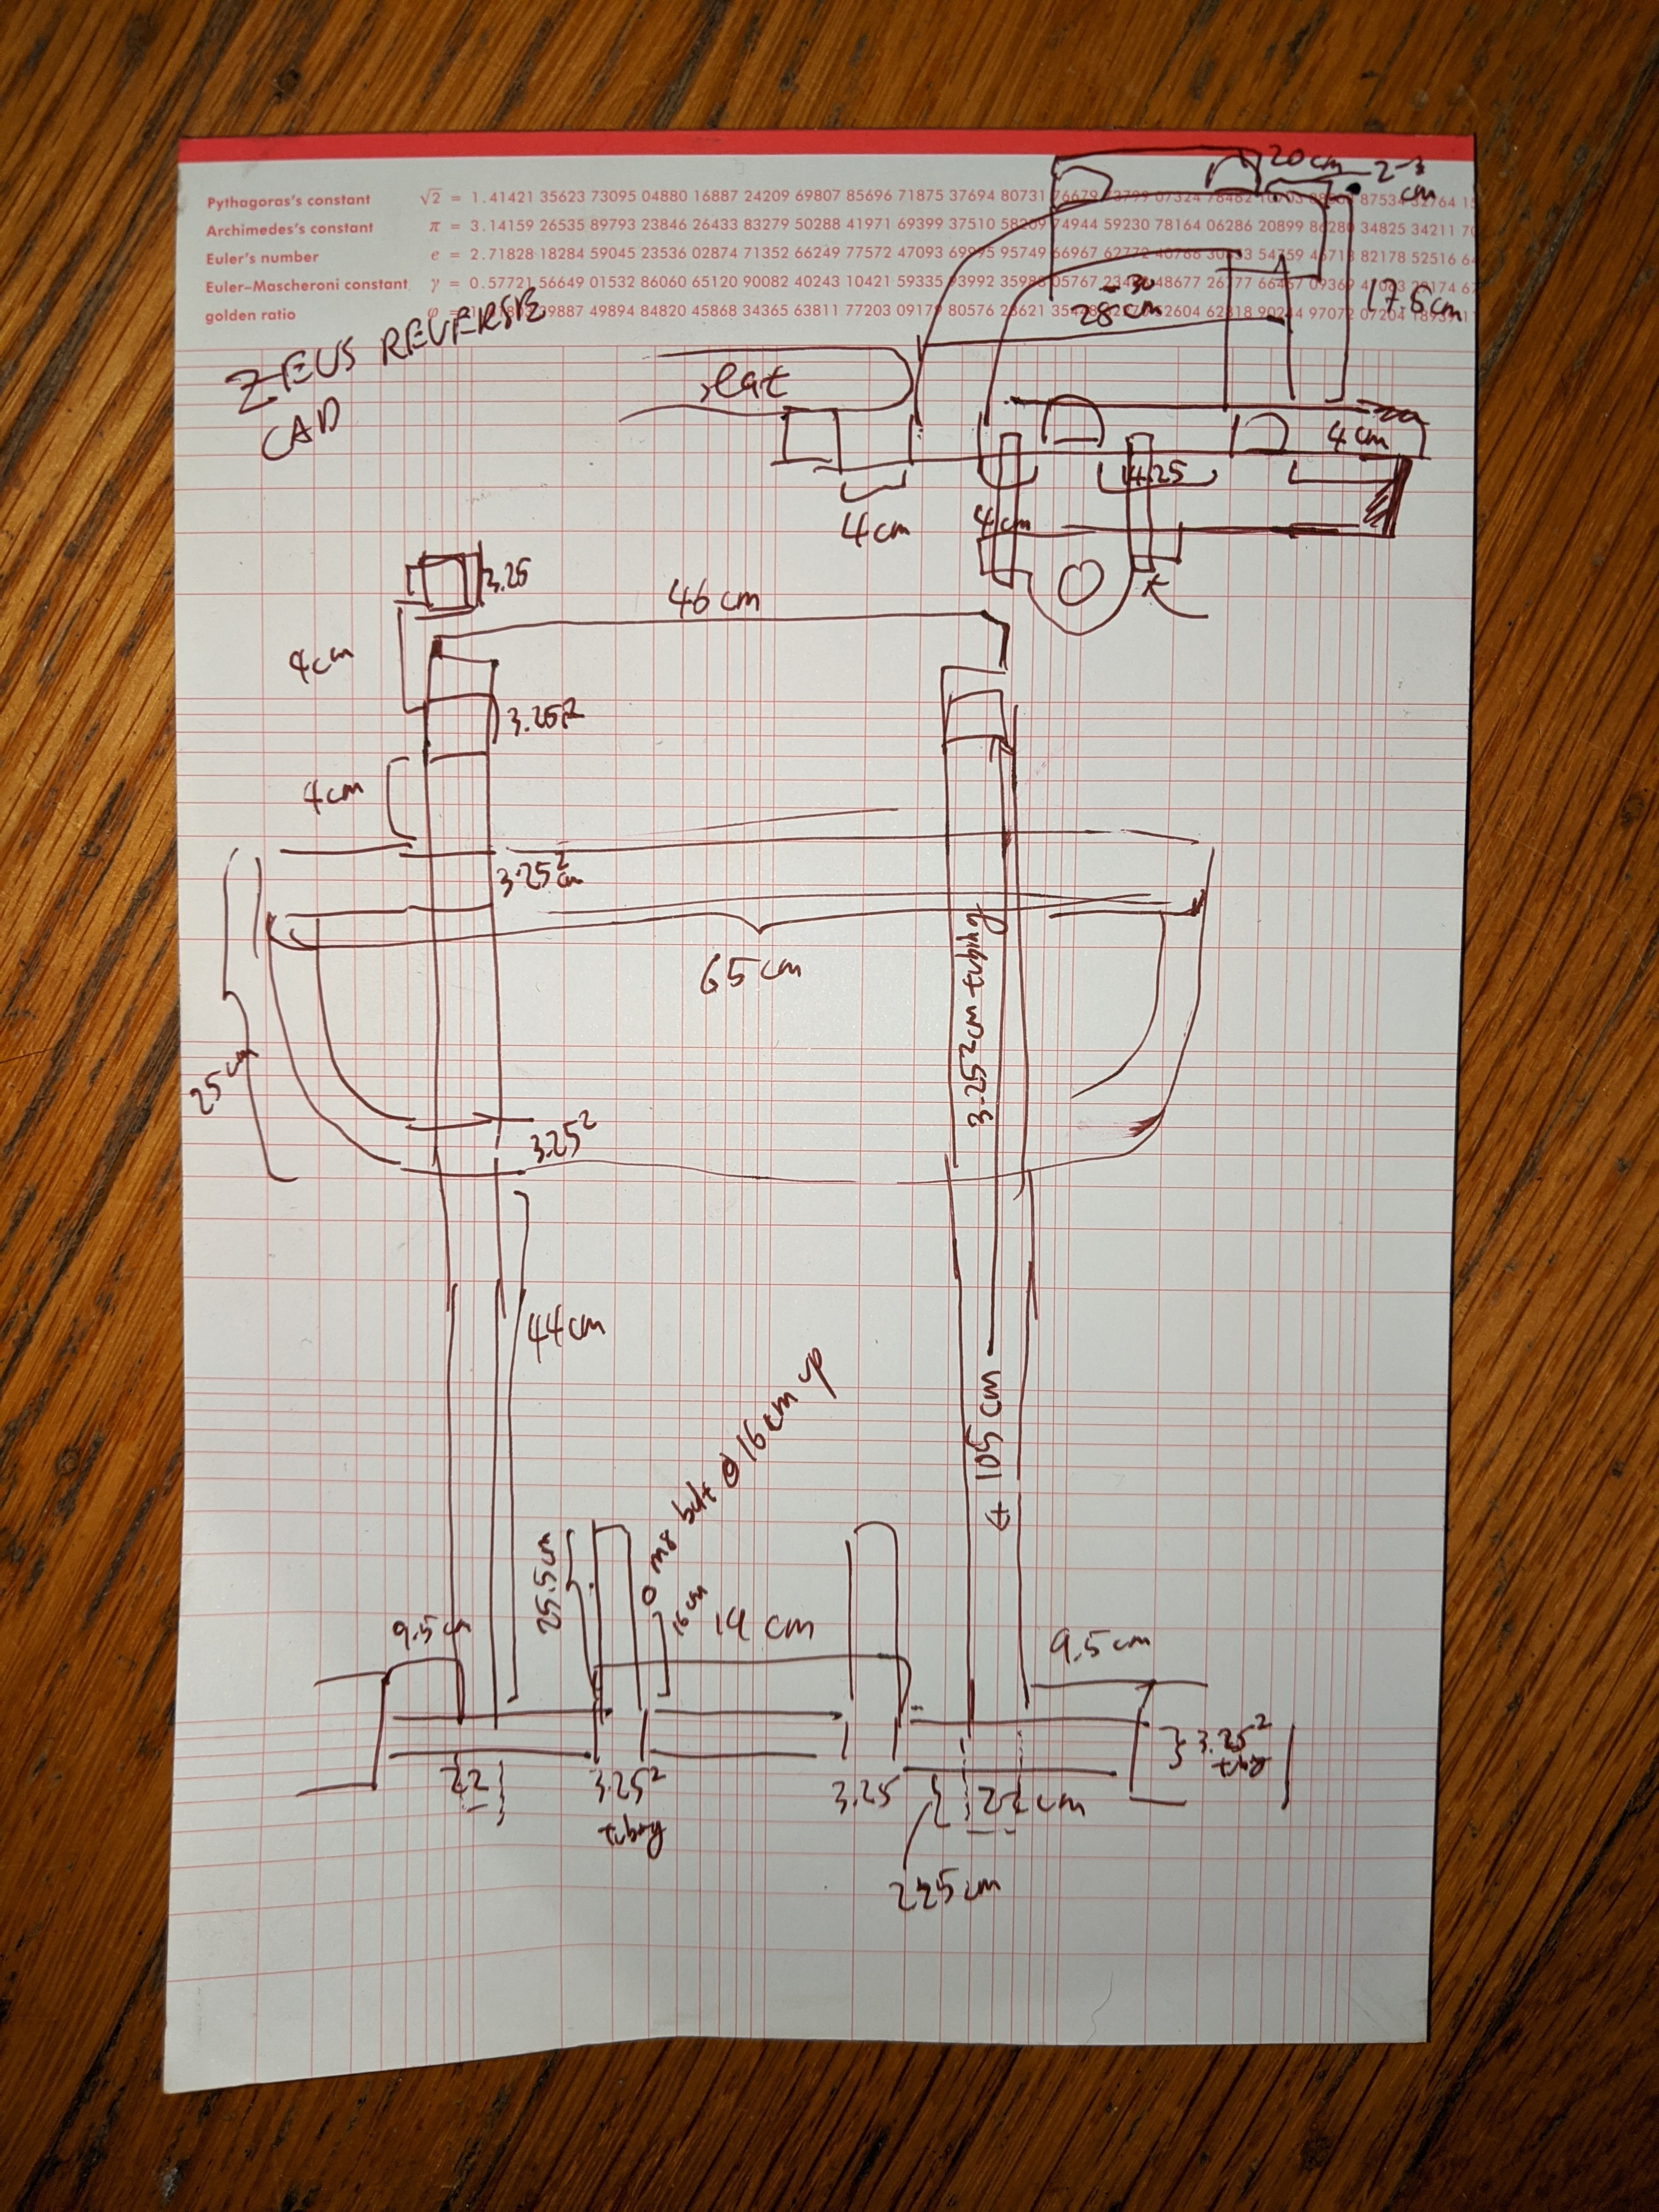 Pythagoras's constant √2 = 1.41421 35623 73095 04880 16887 24209 69807 85696 71875 37694 80731 76679
Archimedes's constant π = 3.14159 26535 89793 23846 26433 83279 50288 41971 69399 37510 58209 74944 59230 78164 06286 20899 86280 34825 34211 70
Euler's number e = 2.71828 18284 59045 23536 02874 71352 66249 77572 47093 69995 95749 66967 62772 40766 30353 54759 45713 82178 52516 64
Euler–Mascheroni constant γ = 0.57721 56649 01532 86060 65120 90082 40243 10421 59335 93992 35988 05767 48677 26777 66467 09369
golden ratio φ = 39887 49894 84820 45868 34365 63811 77203 09179 80576 28621 62604 62818 90244 97072 07204
20cm
2-3
cm
ZEUS REVERSE
CAD
-30
28 cm
17.5cm
seat
4cm
4.25
4cm
4cm
3.25
46cm
4cm
3.25²
4cm
3.25²
cm
65cm
3.25²cm tubing
25cm
3.25²
44cm
0 m8 bolt @ 16cm up
105cm
25.5cm
16cm
14 cm
9.5cm
9.5cm
22
3.25²
tubing
3.25
22 cm
3.25²
tubing
225cm